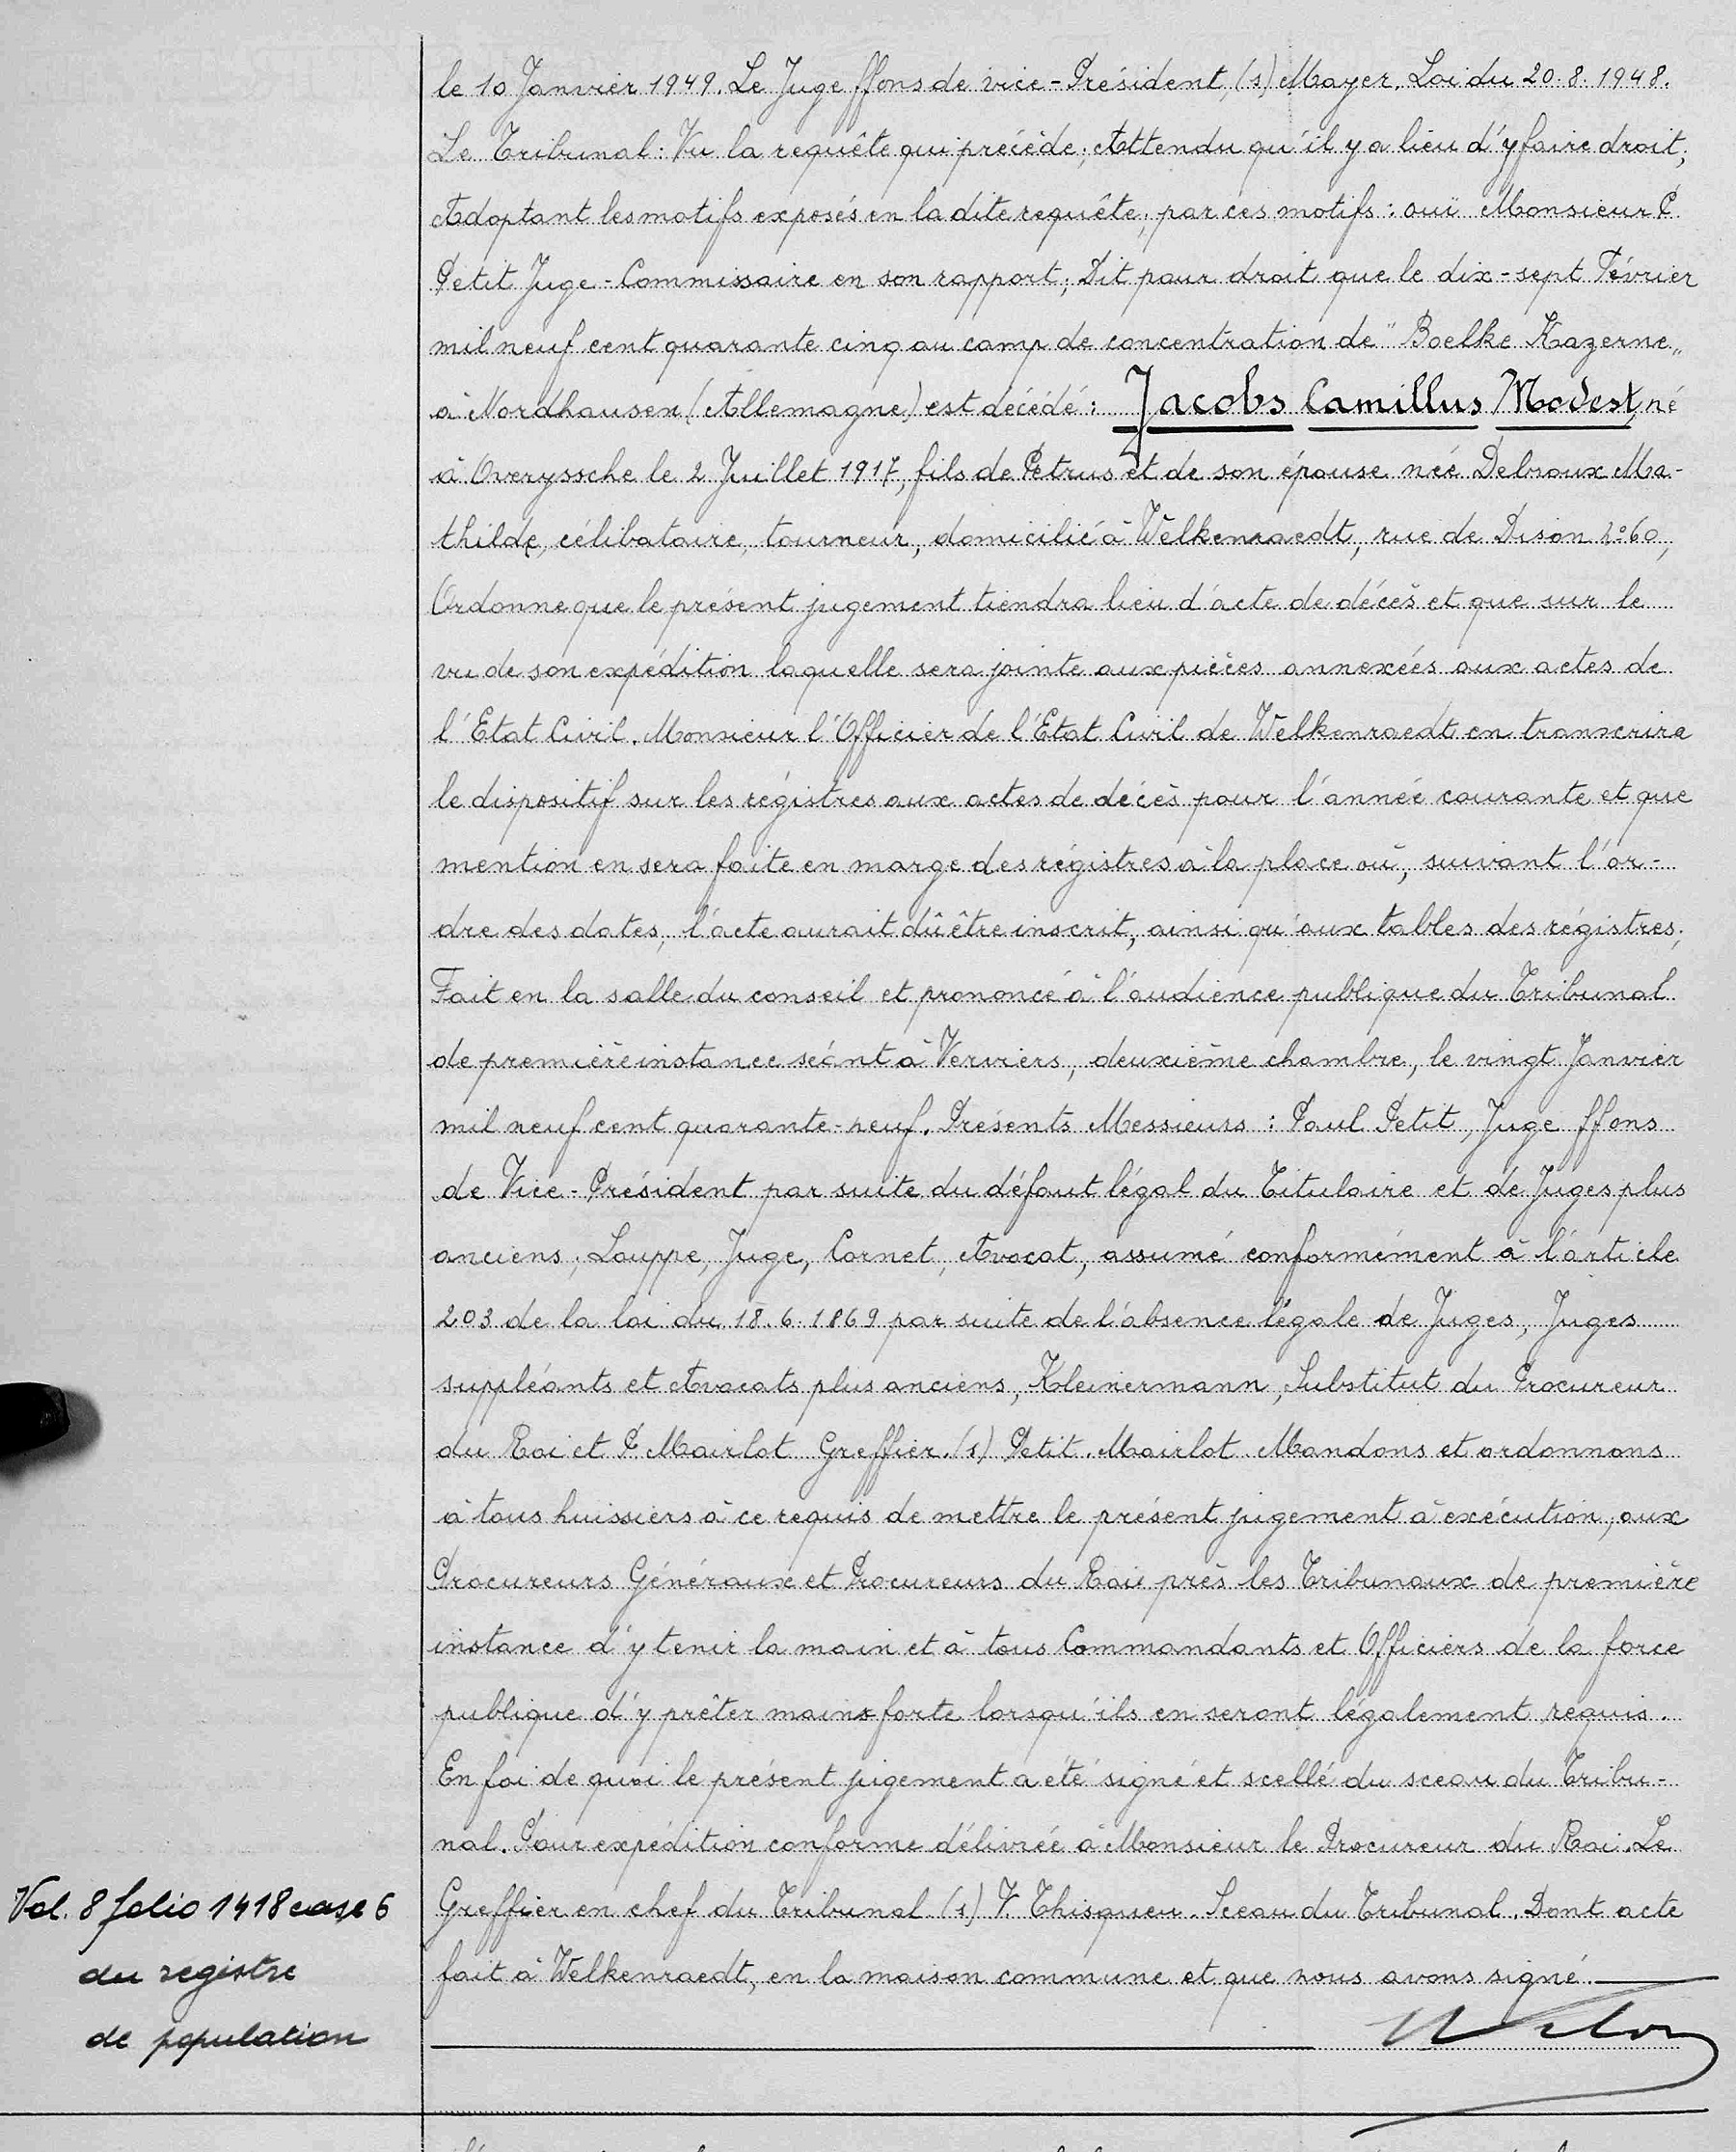 le 10 Janvier 1949. Le Juge ffons de vice-Président, (s) Mayer. Loi du 20.8.1948.
Le Tribunal: Vu la requête qui précède; Attendu qu'il y a lieu d'y faire droit;
Adoptant les motifs exposés en la dite requête; par ces motifs: ouï Monsieur P.
Petit Juge-Commissaire en son rapport; Dit pour droit que le dix-sept Février
mil neuf cent quarante cinq au camp de concentration de "Boelke Kazerne"
à Nordhausen (Allemagne) est décédé: Jacobs Camillus Modest, né
à Overyssche le 2 Juillet 1917, fils de Petrus et de son épouse née Debroux Ma-
thilde, célibataire, tourneur, domicilié à Welkenraedt, rue de Dison n°60,
Ordonne que le présent jugement tiendra lieu d'acte de décès et que sur le
vu de son expédition laquelle sera jointe aux pièces annexées aux actes de
l'Etat Civil. Monsieur l'Officier de l'Etat Civil de Welkenraedt en transcrira
le dispositif sur les régistres aux actes de décès pour l'année courante et que
mention en sera faite en marge des régistres à la place où, suivant l'or-
dre des dates, l'acte aurait dû être inscrit, ainsi qu'aux tables des régistres;
Fait en la salle du conseil et prononcé à l'audience publique du Tribunal
de première instance séant à Verviers, deuxième chambre, le vingt Janvier
mil neuf cent quarante-neuf. Présents Messieurs: Paul Petit, Juge ffons
de Vice-Président par suite du défaut légal du Titulaire et de Juges plus
anciens; Louppe, Juge, Cornet, Avocat, assumé conformément à l'article
203 de la loi du 18.6.1869 par suite de l'absence légale de Juges, Juges
suppléants et Avocats plus anciens, Kleinermann, Substitut du Procureur
du Roi et P. Mairlot Greffier. (s) Petit. Mairlot. Mandons et ordonnons
à tous huissiers à ce requis de mettre le présent jugement à exécution, aux
Procureurs Généraux et Procureurs du Roi près les Tribunaux de première
instance d'y tenir la main et à tous Commandants et Officiers de la force
publique d'y prêter mains forte lorsqu'ils en seront légalement requis.
En foi de quoi le présent jugement a été signé et scellé du sceau du Tribu-
nal. Pour expédition conforme délivrée à Monsieur le Procureur du Roi. Le
Greffier en chef du Tribunal (s) V. Thisquen. Sceau du Tribunal. Dont acte
fait à Welkenraedt, en la maison commune et que nous avons signé.
Vol. 8 folio 1418 case 6
du registre
de population